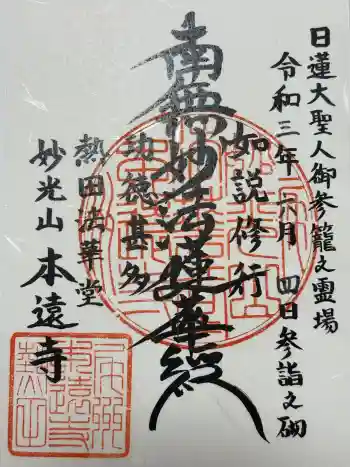 日蓮大聖人御参籠之霊場
令和三年六月四日参詣之砌
如説修行
南無妙法蓮華経
功徳甚多
熱田法華堂
妙光山 本遠寺